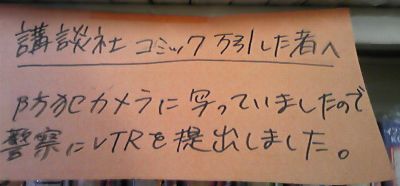 講談社 コミック 万引した者へ
防犯カメラに写っていましたので
警察にVTRを提出しました。